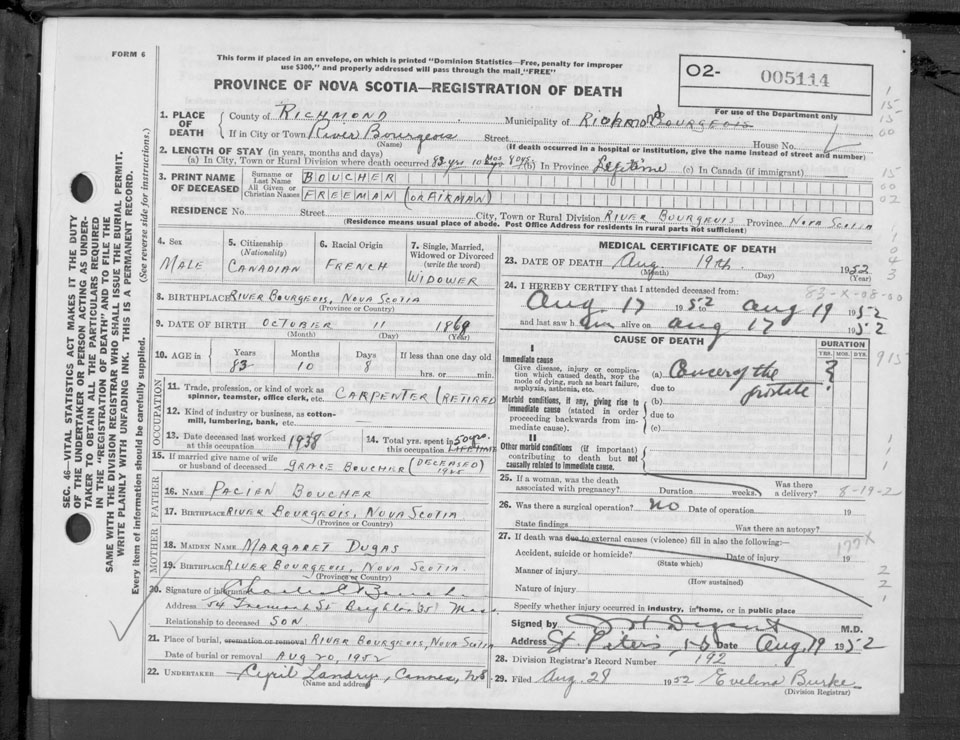 FORM 6
This form if placed in an envelope, on which is printed "Dominion Statistics—Free, penalty for improper
use $300," and properly addressed will pass through the mail "FREE"
PROVINCE OF NOVA SCOTIA—REGISTRATION OF DEATH
O2- 005114
For use of the Department only
1. PLACE OF DEATH
County of RICHMOND Municipality of RICHMOND BOURGEOIS
If in City or Town River Bourgeois Street House No.
(Name) (If death occurred in a hospital or institution, give the name instead of street and number)
2. LENGTH OF STAY (in years, months and days)
(a) In City, Town or Rural Division where death occurred 83 yrs 10 mos 8 dys (b) In Province Lifetime (c) In Canada (if immigrant)
3. PRINT NAME OF DECEASED
Surname or Last Name BOUCHER
All Given or Christian Names FREEMAN (OR FIRMAN)
RESIDENCE No. Street City, Town or Rural Division RIVER BOURGEOIS Province NOVA SCOTIA
(Residence means usual place of abode. Post Office Address for residents in rural parts not sufficient)
4. Sex MALE
5. Citizenship (Nationality) CANADIAN
6. Racial Origin FRENCH
7. Single, Married, Widowed or Divorced (write the word) WIDOWER
8. BIRTHPLACE RIVER BOURGEOIS, NOVA SCOTIA
(Province or Country)
9. DATE OF BIRTH OCTOBER 11 1869
(Month) (Day) (Year)
10. AGE in Years 83 Months 10 Days 8 If less than one day old
hrs. or min.
OCCUPATION
11. Trade, profession, or kind of work as spinner, teamster, office clerk, etc. CARPENTER (RETIRED
12. Kind of industry or business, as cotton-mill, lumbering, bank, etc.
13. Date deceased last worked at this occupation 1938
14. Total yrs. spent in this occupation 50 yrs. LIFETIME
15. If married give name of wife or husband of deceased GRACE BOUCHER (DECEASED)
FATHER
16. NAME PACIEN BOUCHER
17. BIRTHPLACE RIVER BOURGEOIS, NOVA SCOTIA.
(Province or Country)
MOTHER
18. MAIDEN NAME MARGARET DUGAS
19. BIRTHPLACE RIVER BOURGEOIS, NOVA SCOTIA.
(Province or Country)
20. Signature of informant
Address 54 Tremont St Brighton 35 Mass.
Relationship to deceased SON
21. Place of burial, cremation or removal RIVER BOURGEOIS, NOVA SCOTIA
Date of burial or removal AUG 20, 1952
22. UNDERTAKER Cyril Landry, Cannes, N.S.
(Name and address)
MEDICAL CERTIFICATE OF DEATH
23. DATE OF DEATH Aug. 19th 1952
(Month) (Day) (Year)
24. I HEREBY CERTIFY that I attended deceased from:
83-X-08-00
Aug 17 1952 to Aug 19 1952
and last saw him alive on Aug 17 1952
CAUSE OF DEATH
DURATION
YRS. MOS. DYS.
I
Immediate cause
Give disease, injury or complication which caused death, not the mode of dying, such as heart failure, asphyxia, asthenia, etc.
(a) Cancer of the prostate ?
due to
Morbid conditions, if any, giving rise to immediate cause (stated in order proceeding backwards from immediate cause).
(b)
due to
(c)
II
Other morbid conditions (if important) contributing to death but not causally related to immediate cause.
25. If a woman, was the death associated with pregnancy? Duration weeks. Was there a delivery? 8-19-2
26. Was there a surgical operation? No Date of operation 19
State findings Was there an autopsy?
27. If death was due to external causes (violence) fill in also the following:— 177X
Accident, suicide or homicide? Date of injury 19
(State which)
Manner of injury
(How sustained)
Nature of injury
Specify whether injury occurred in industry, in home, or in public place
Signed by M.D.
Address St. Peters, N.S. Date Aug. 19 1952
28. Division Registrar's Record Number 192
29. Filed Aug. 28 1952 Evelina Burke
(Division Registrar)
SEC. 46—VITAL STATISTICS ACT MAKES IT THE DUTY
OF THE UNDERTAKER OR PERSON ACTING AS UNDER-
TAKER TO OBTAIN ALL THE PARTICULARS REQUIRED
IN THE "REGISTRATION OF DEATH" AND TO FILE THE
SAME WITH THE DIVISION REGISTRAR WHO SHALL ISSUE THE BURIAL PERMIT.
WRITE PLAINLY WITH UNFADING INK. THIS IS A PERMANENT RECORD.
Every item of information should be carefully supplied. (See reverse side for instructions.)